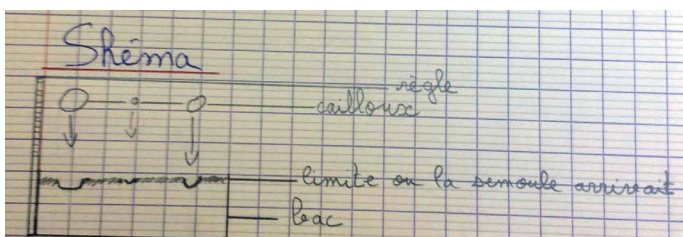 Shéma
règle
cailloux
limite ou la semoule arrivait
bac